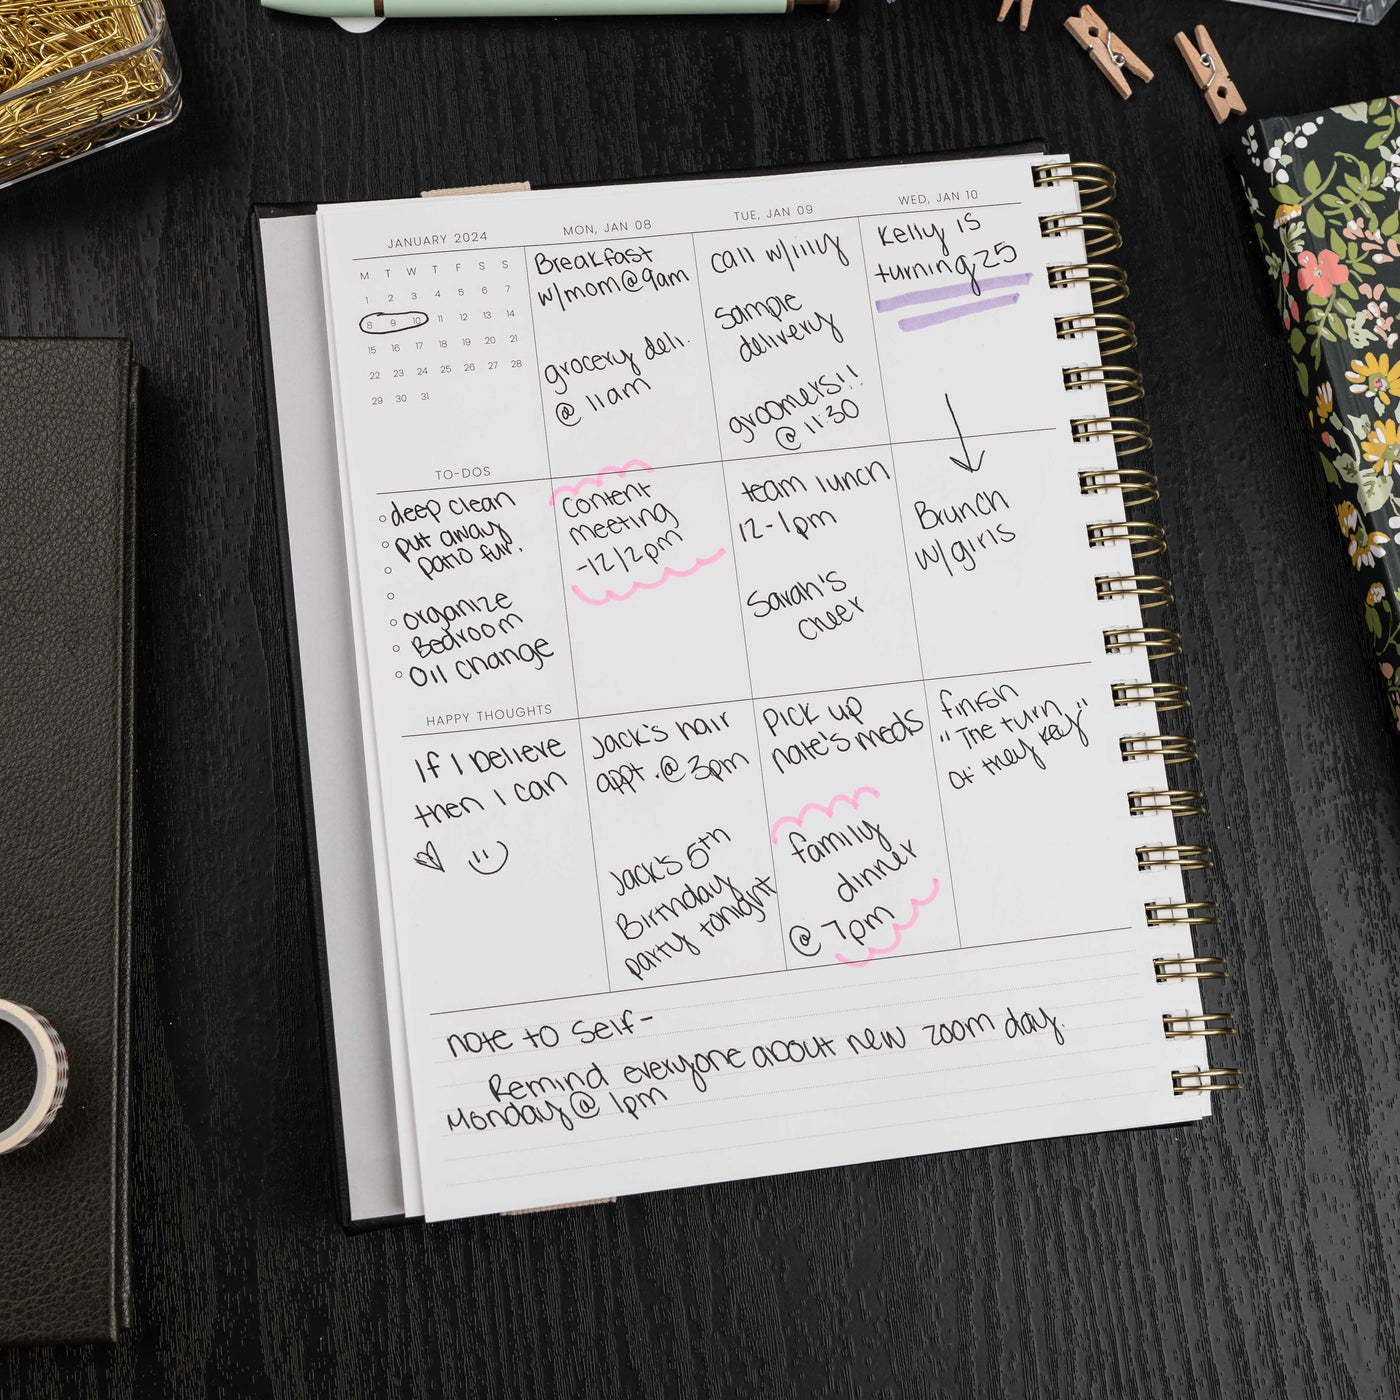 JANUARY 2024
M T W T F S S
1 2 3 4 5 6 7
8 9 10 11 12 13 14
15 16 17 18 19 20 21
22 23 24 25 26 27 28
29 30 31
TO-DOS
deep clean
put away
patio fur.
organize
Bedroom
Oil change
HAPPY THOUGHTS
If I believe
then I can
MON, JAN 08
Breakfast
w/mom@9am
grocery deli.
@ 11am
content
meeting
-12/2pm
Jack's hair
appt. @ 3pm
Jack's 5th
Birthday
party tonight
TUE, JAN 09
call w/lilly
sample
delivery
groomers!!
@ 11:30
team lunch
12-1pm
Sarah's
cheer
pick up
nate's meds
family
dinner
@ 7pm
WED, JAN 10
Kelly is
turning 25
Brunch
w/girls
finish
"The turn
of they key"
note to self-
Remind everyone about new zoom day.
Monday @ 1pm